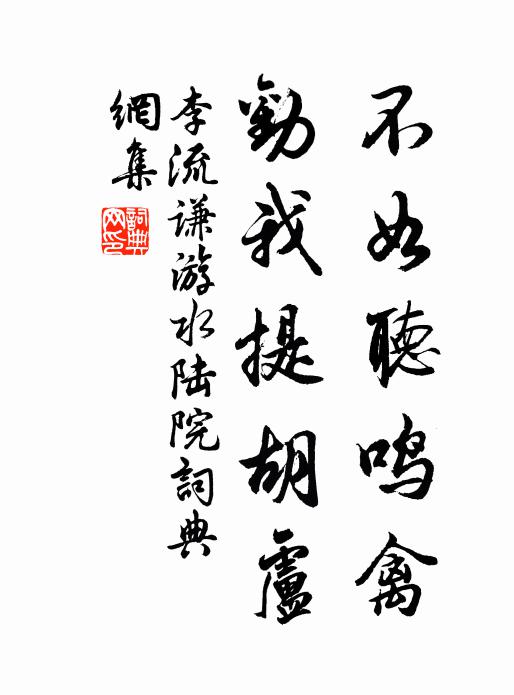 不如聽鸣禽
勸我提胡盧
李流谦游水陆院詞典
網集
詞典网印